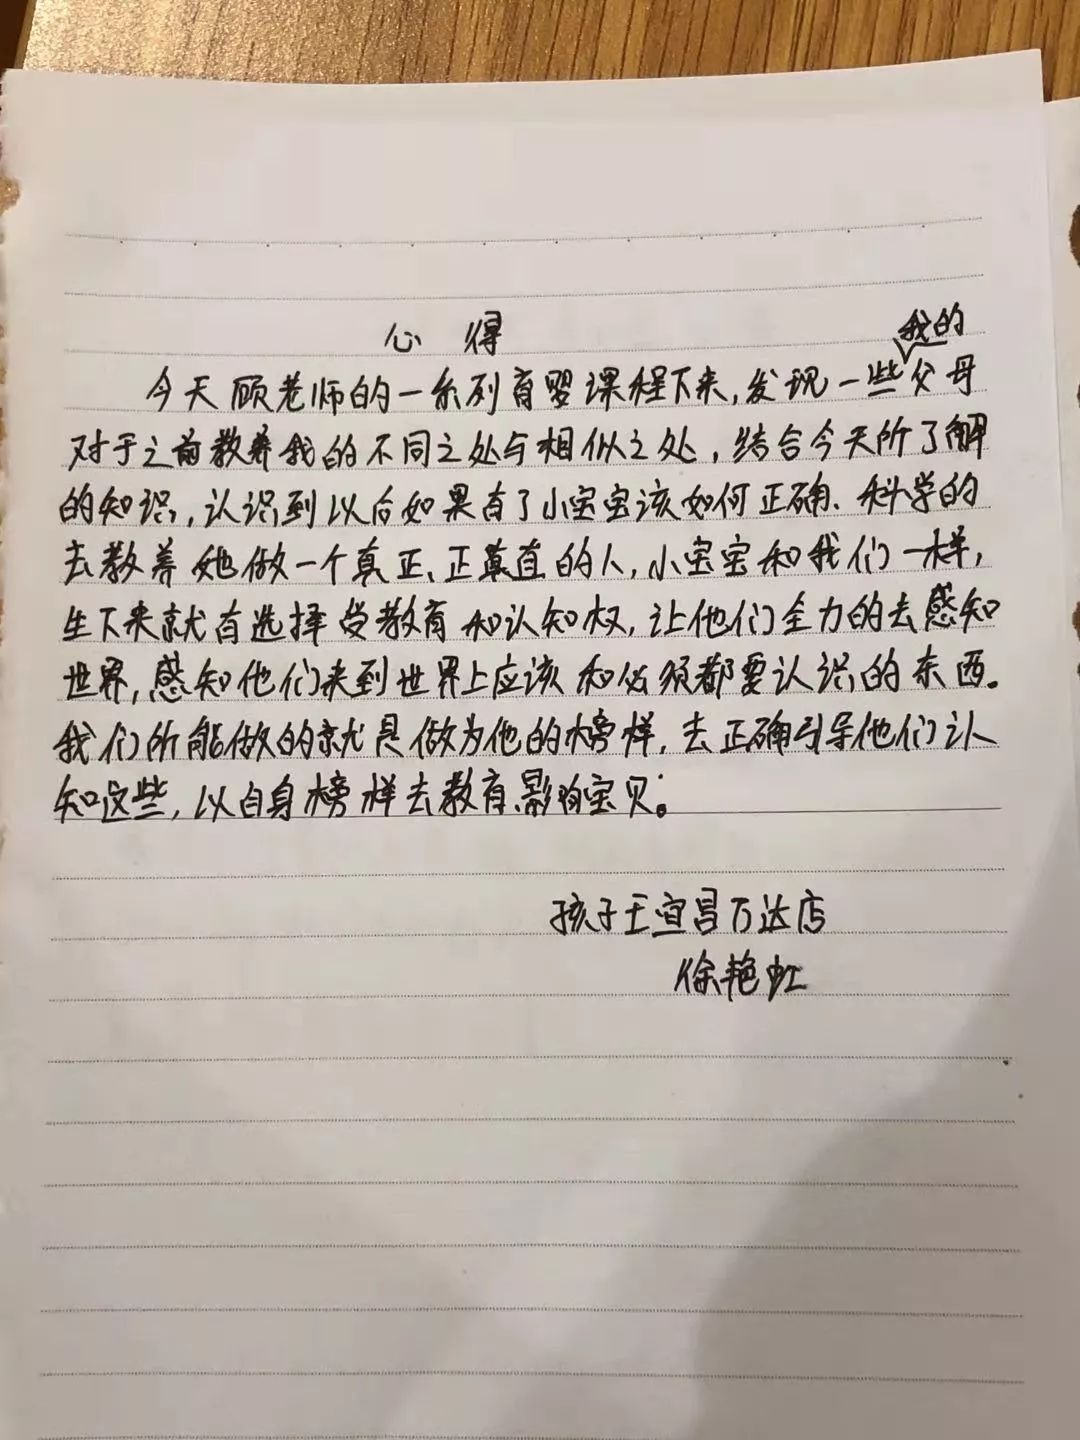 心得
我的
今天顾老师的一系列育婴课程下来,发现一些父母
对于之前教养我的不同之处与相似之处,结合今天所了解
的知识,认识到以后如果有了小宝宝该如何正确、科学的
去教养她做一个真正、正直的人,小宝宝和我们一样,
生下来就有选择受教育和认知权,让他们全力的去感知
世界,感知他们来到世界上应该和必须都要认识的东西。
我们所能做的就是做为他的榜样,去正确引导他们认
知这些,以自身榜样去教育影响宝贝。
孩子王宜昌万达店
徐艳虹